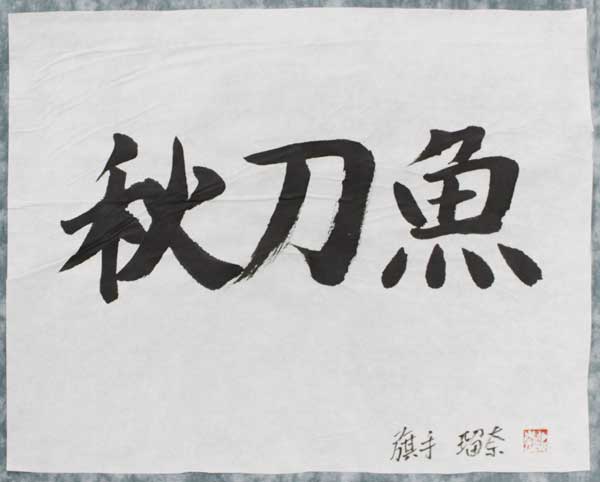 秋刀魚
旗手 瑠奈